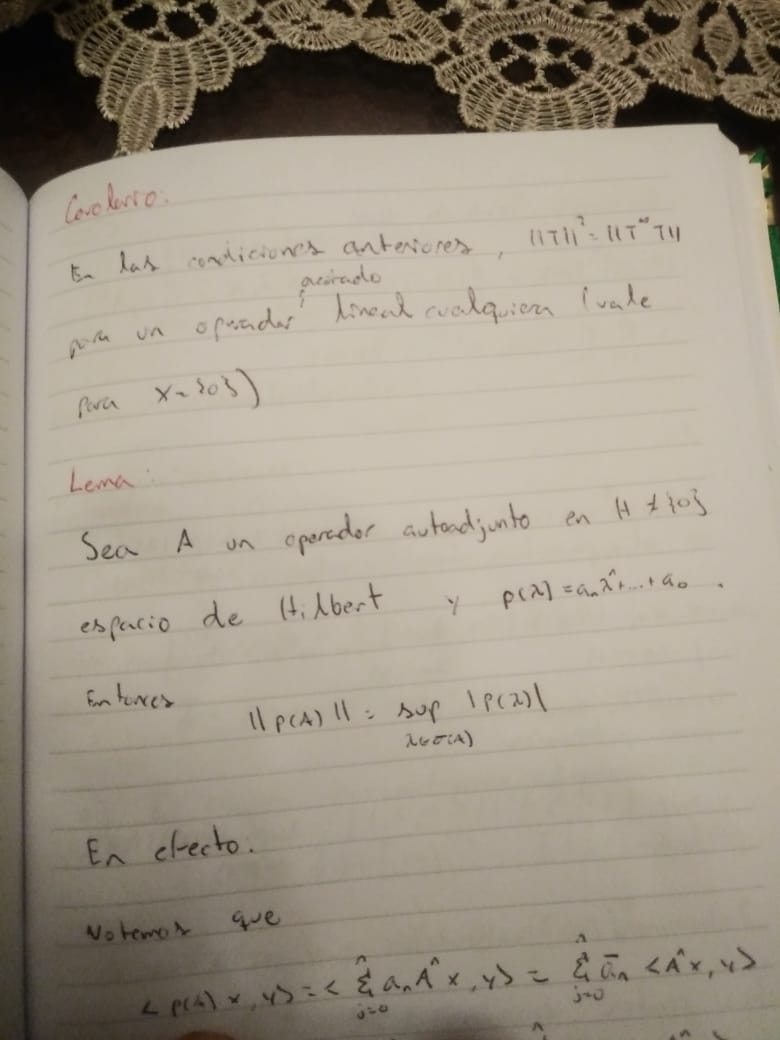 Corolario:
En las condiciones anteriores, ||T||² = ||T*T||
acotado
para un operador lineal cualquiera (vale
para X = {0})
Lema:
Sea A un operador autoadjunto en H ≠ {0}
espacio de Hilbert y p(λ) = aₙλⁿ+...+a₀.
Entonces
||p(A)|| = sup |p(λ)|
λ∈σ(A)
En efecto.
Notemos que
<p(A)x, y> = <∑ⁿⱼ₌₀ aₙAⁿx, y> = ∑ⁿⱼ₌₀ āₙ <Aⁿx, y>